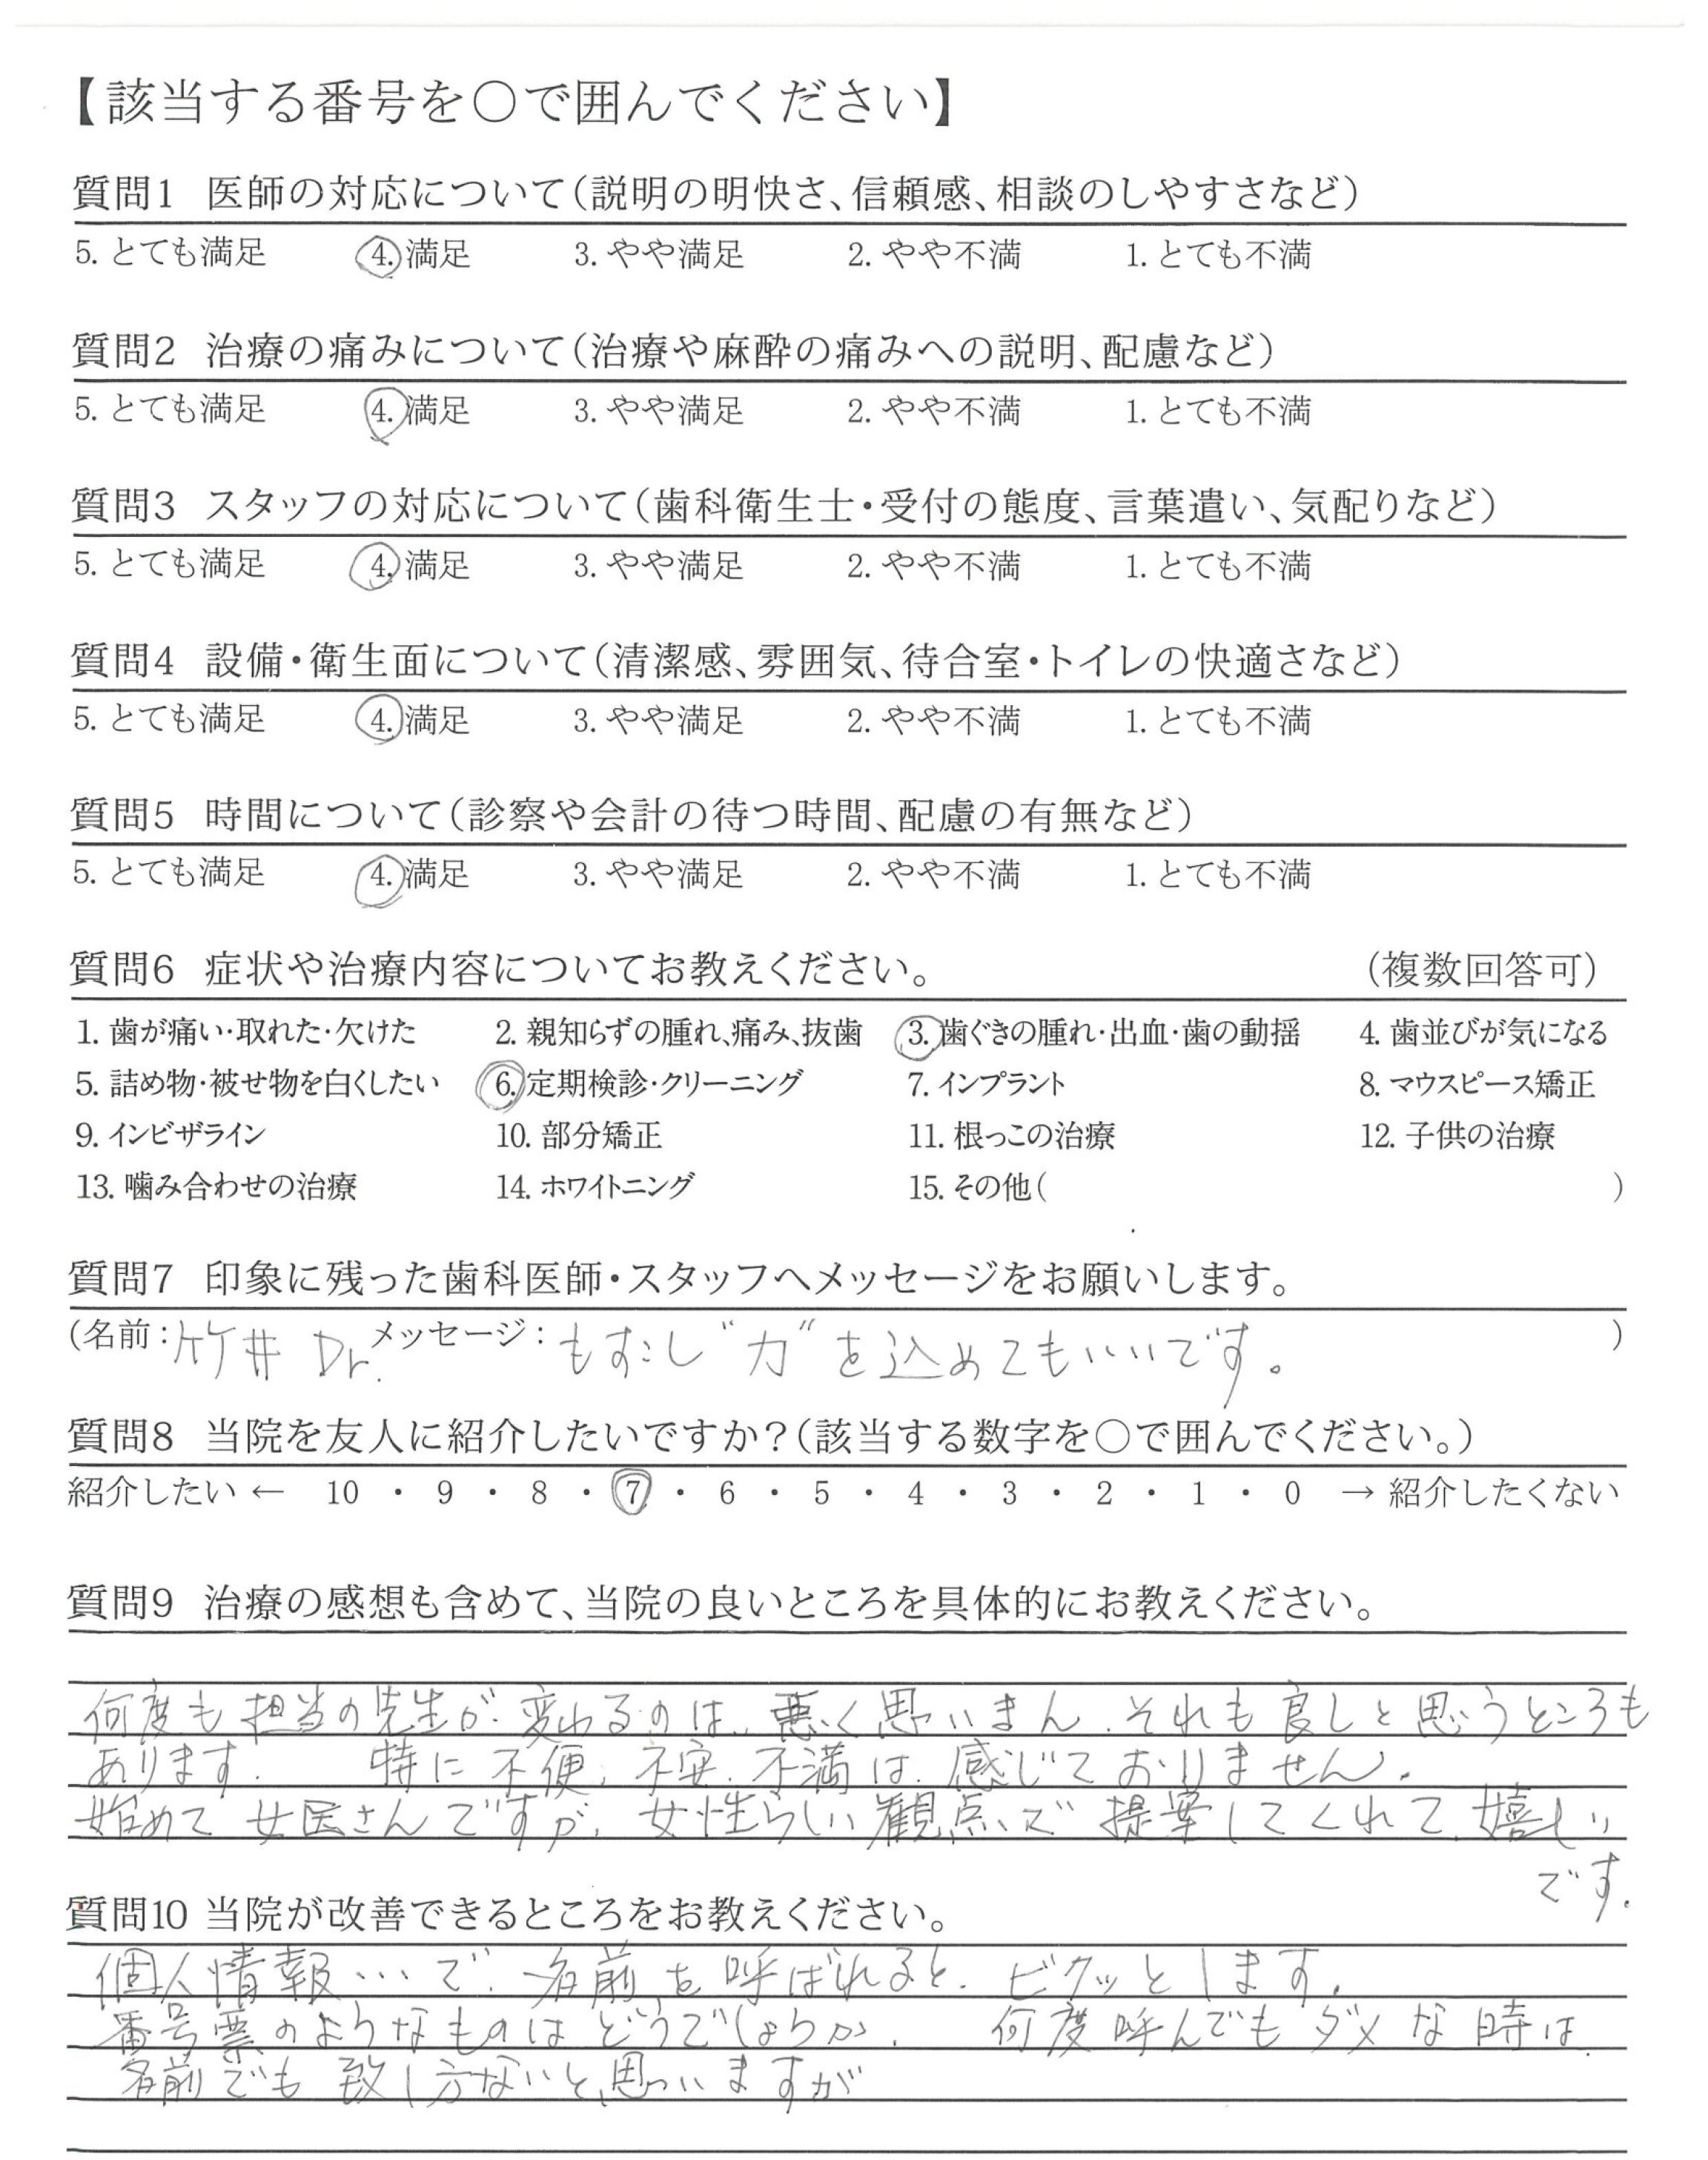 【該当する番号を○で囲んでください】
質問1 医師の対応について(説明の明快さ、信頼感、相談のしやすさなど)
5. とても満足 4. 満足 3. やや満足 2. やや不満 1. とても不満
質問2 治療の痛みについて(治療や麻酔の痛みへの説明、配慮など)
5. とても満足 4. 満足 3. やや満足 2. やや不満 1. とても不満
質問3 スタッフの対応について(歯科衛生士・受付の態度、言葉遣い、気配りなど)
5. とても満足 4. 満足 3. やや満足 2. やや不満 1. とても不満
質問4 設備・衛生面について(清潔感、雰囲気、待合室・トイレの快適さなど)
5. とても満足 4. 満足 3. やや満足 2. やや不満 1. とても不満
質問5 時間について(診察や会計の待つ時間、配慮の有無など)
5. とても満足 4. 満足 3. やや満足 2. やや不満 1. とても不満
質問6 症状や治療内容についてお教えください。 (複数回答可)
1. 歯が痛い・取れた・欠けた 2. 親知らずの腫れ、痛み、抜歯 3. 歯ぐきの腫れ・出血・歯の動揺 4. 歯並びが気になる
5. 詰め物・被せ物を白くしたい 6. 定期検診・クリーニング 7. インプラント 8. マウスピース矯正
9. インビザライン 10. 部分矯正 11. 根っこの治療 12. 子供の治療
13. 噛み合わせの治療 14. ホワイトニング 15. その他( )
質問7 印象に残った歯科医師・スタッフへメッセージをお願いします。
(名前:竹井 Dr. メッセージ:もすこし"力"を込めてもいいです。 )
質問8 当院を友人に紹介したいですか?(該当する数字を○で囲んでください。)
紹介したい ← 10 ・ 9 ・ 8 ・ 7 ・ 6 ・ 5 ・ 4 ・ 3 ・ 2 ・ 1 ・ 0 → 紹介したくない
質問9 治療の感想も含めて、当院の良いところを具体的にお教えください。
何度も担当の先生が変わるのは、悪く思いまん、それも良しと思うところも
あります. 特に不便、不安、不満は感じておりません.
始めて女医さんですが、女性らしい観点で提案してくれて、嬉しい
です.
質問10 当院が改善できるところをお教えください。
個人情報…で、名前を呼ばれると、ビクッとします.
番号票のようなものはどうでしょうか. 何度呼んでもダメな時は
名前でも致し方ないと思いますが